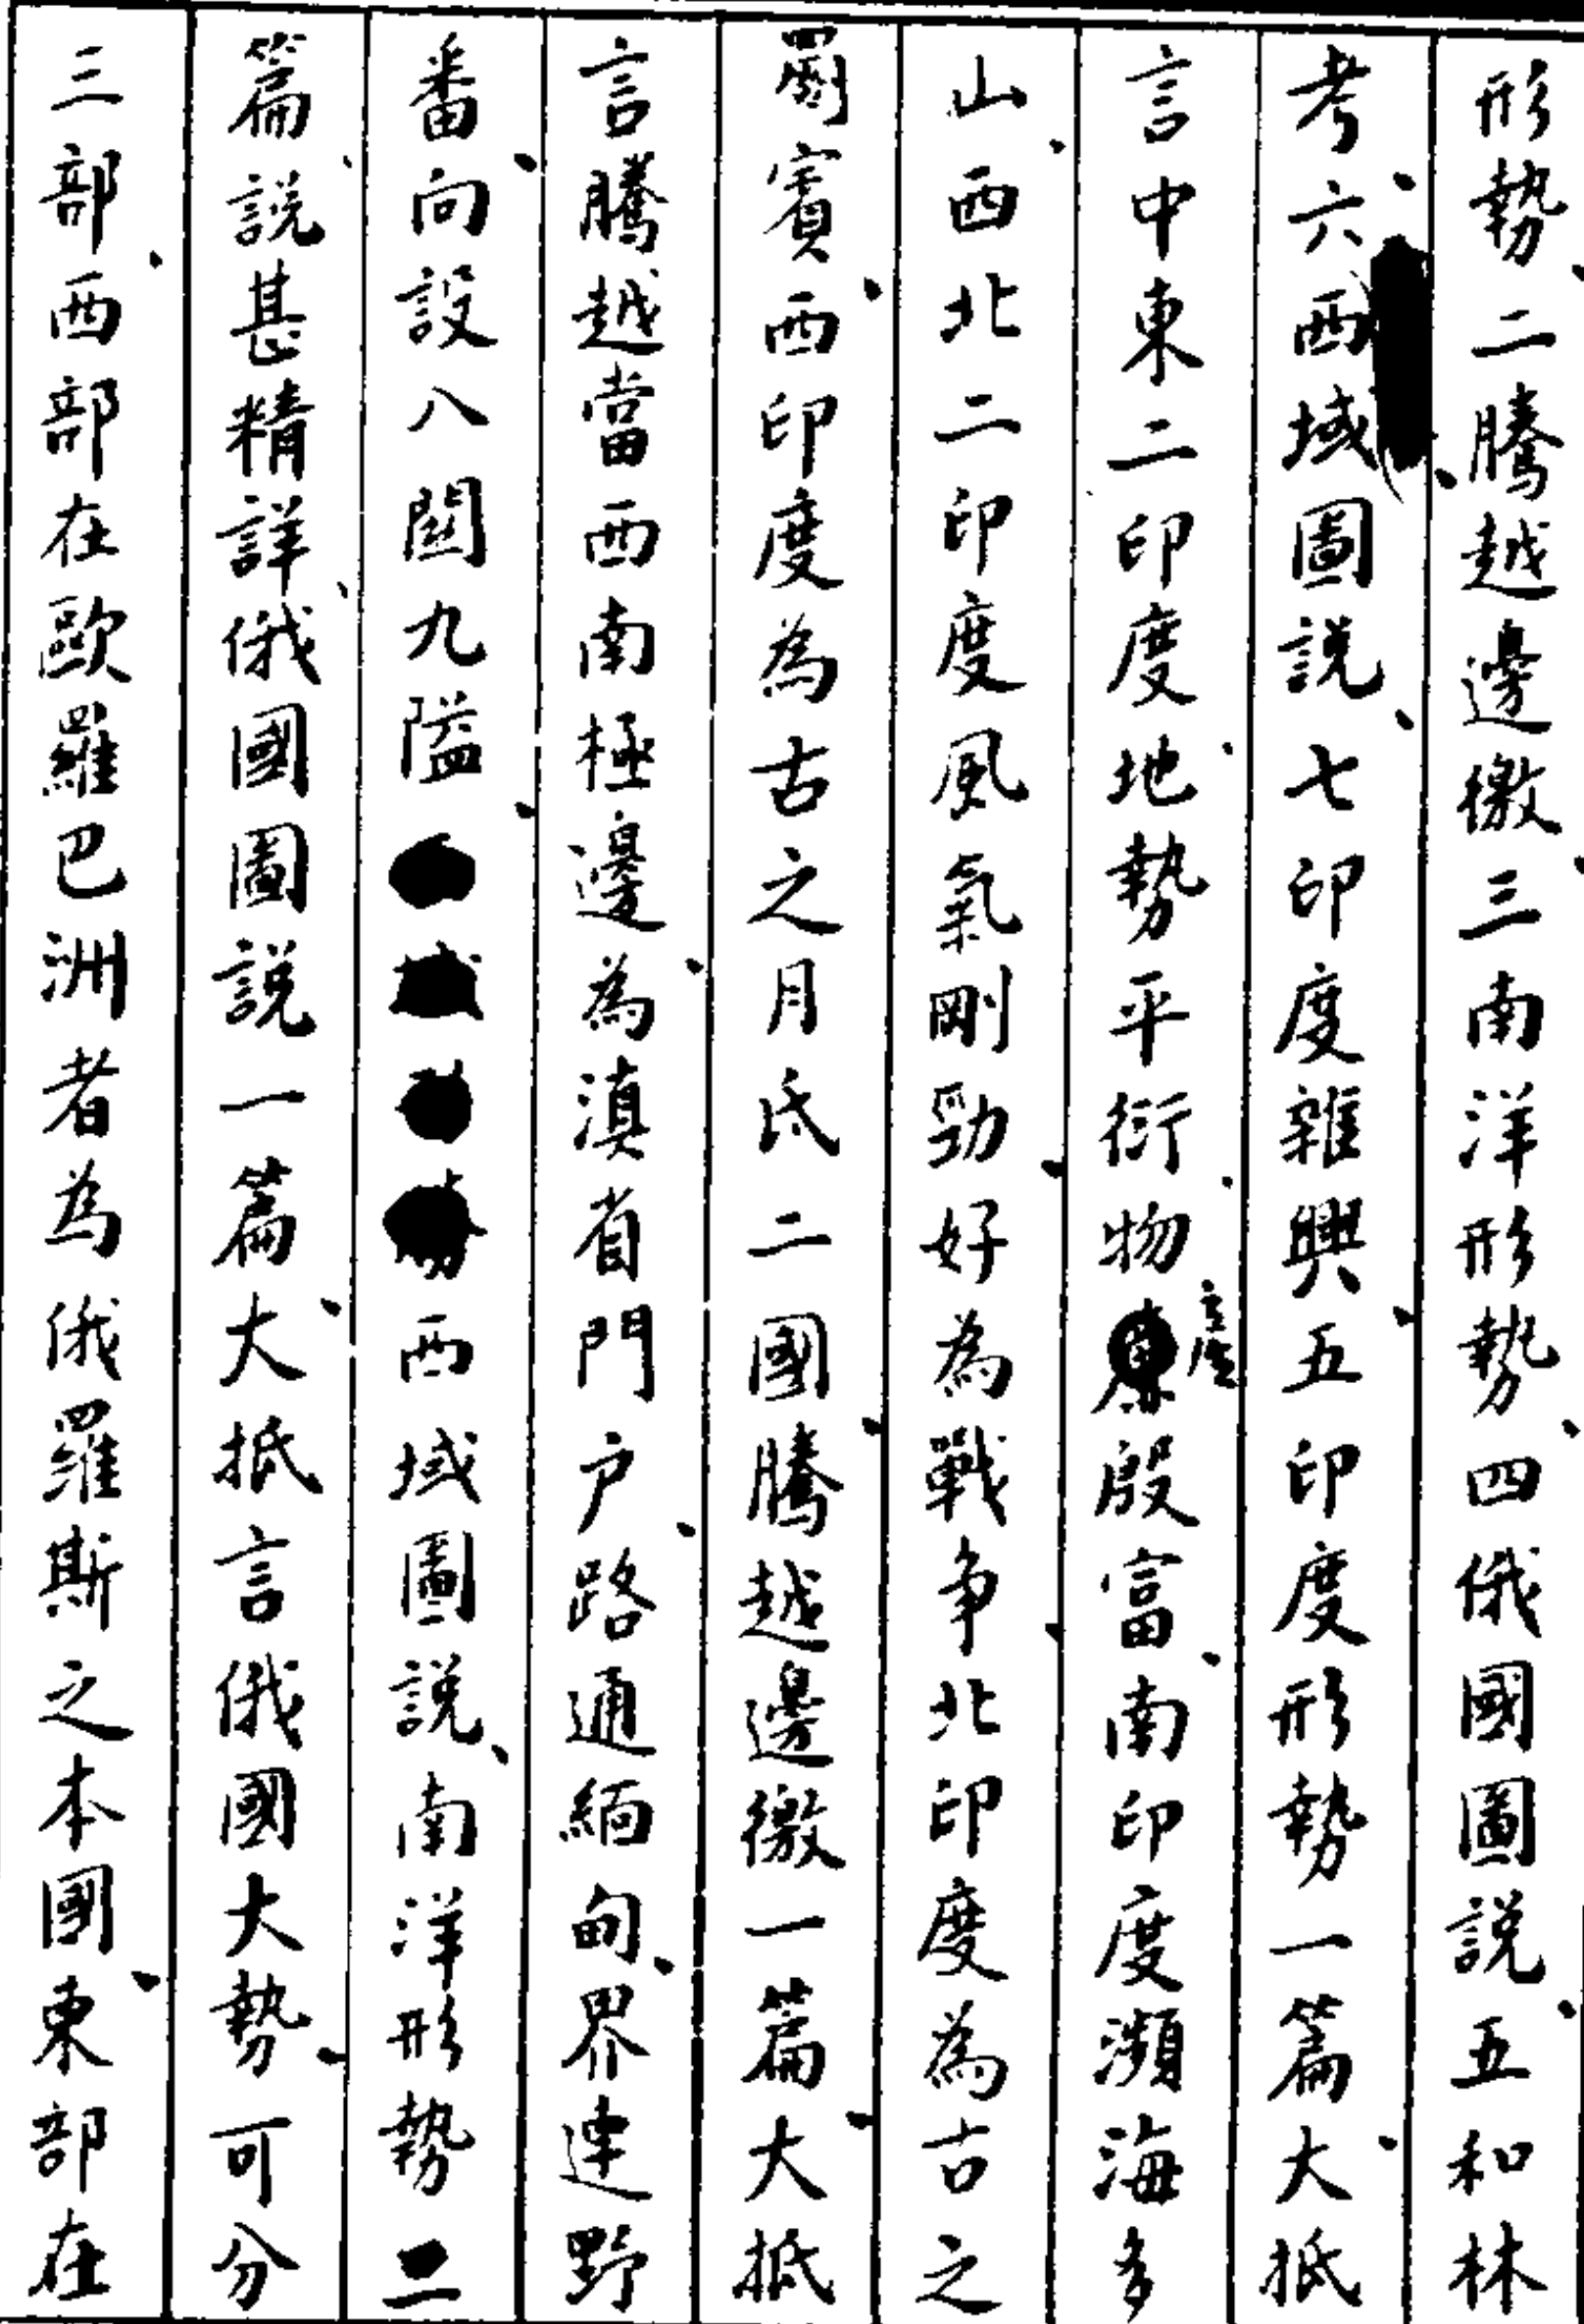 形勢二騰越邊徼三南洋形勢四俄國圖説五和林
考六西域圖説七印度雜興五印度形勢一篇大抵
言中東二印度地勢平衍物產殷富南印度瀕海多
山西北二印度風氣剛勁好為戰争北印度為古之
罽賓西印度為古之月氐二國騰越邊徼一篇大抵
言騰越當西南極邊為滇省門户路通緬甸界連野
番向設八關九隘西域圖説南洋形勢二
篇説甚精詳俄國圖説一篇大抵言俄國大勢可分
三部西部在歐羅巴洲者為俄羅斯之本國東部在